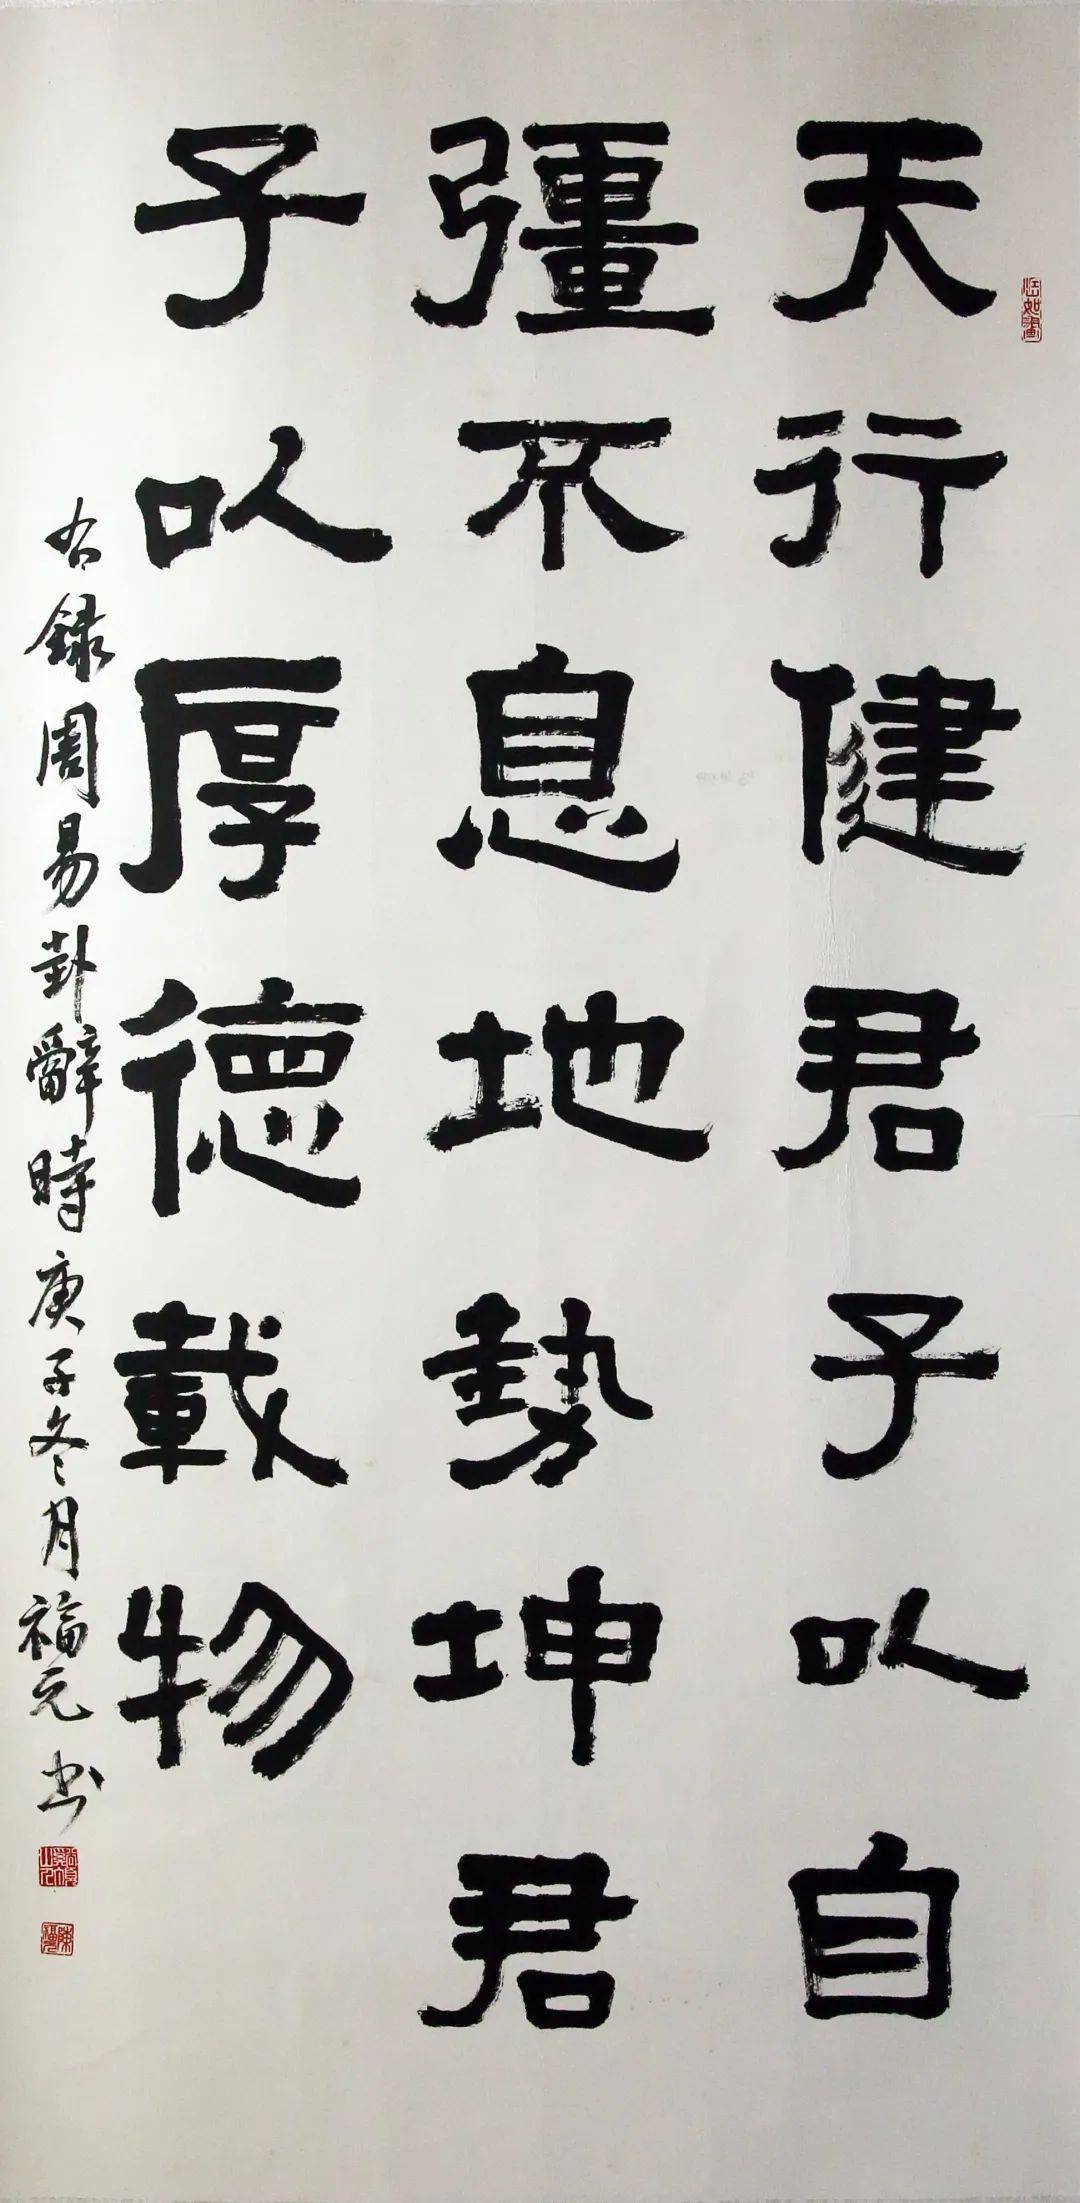 天行健君子以自
彊不息地勢坤君
子以厚德載物
右錄周易卦辭時庚子冬月福元書